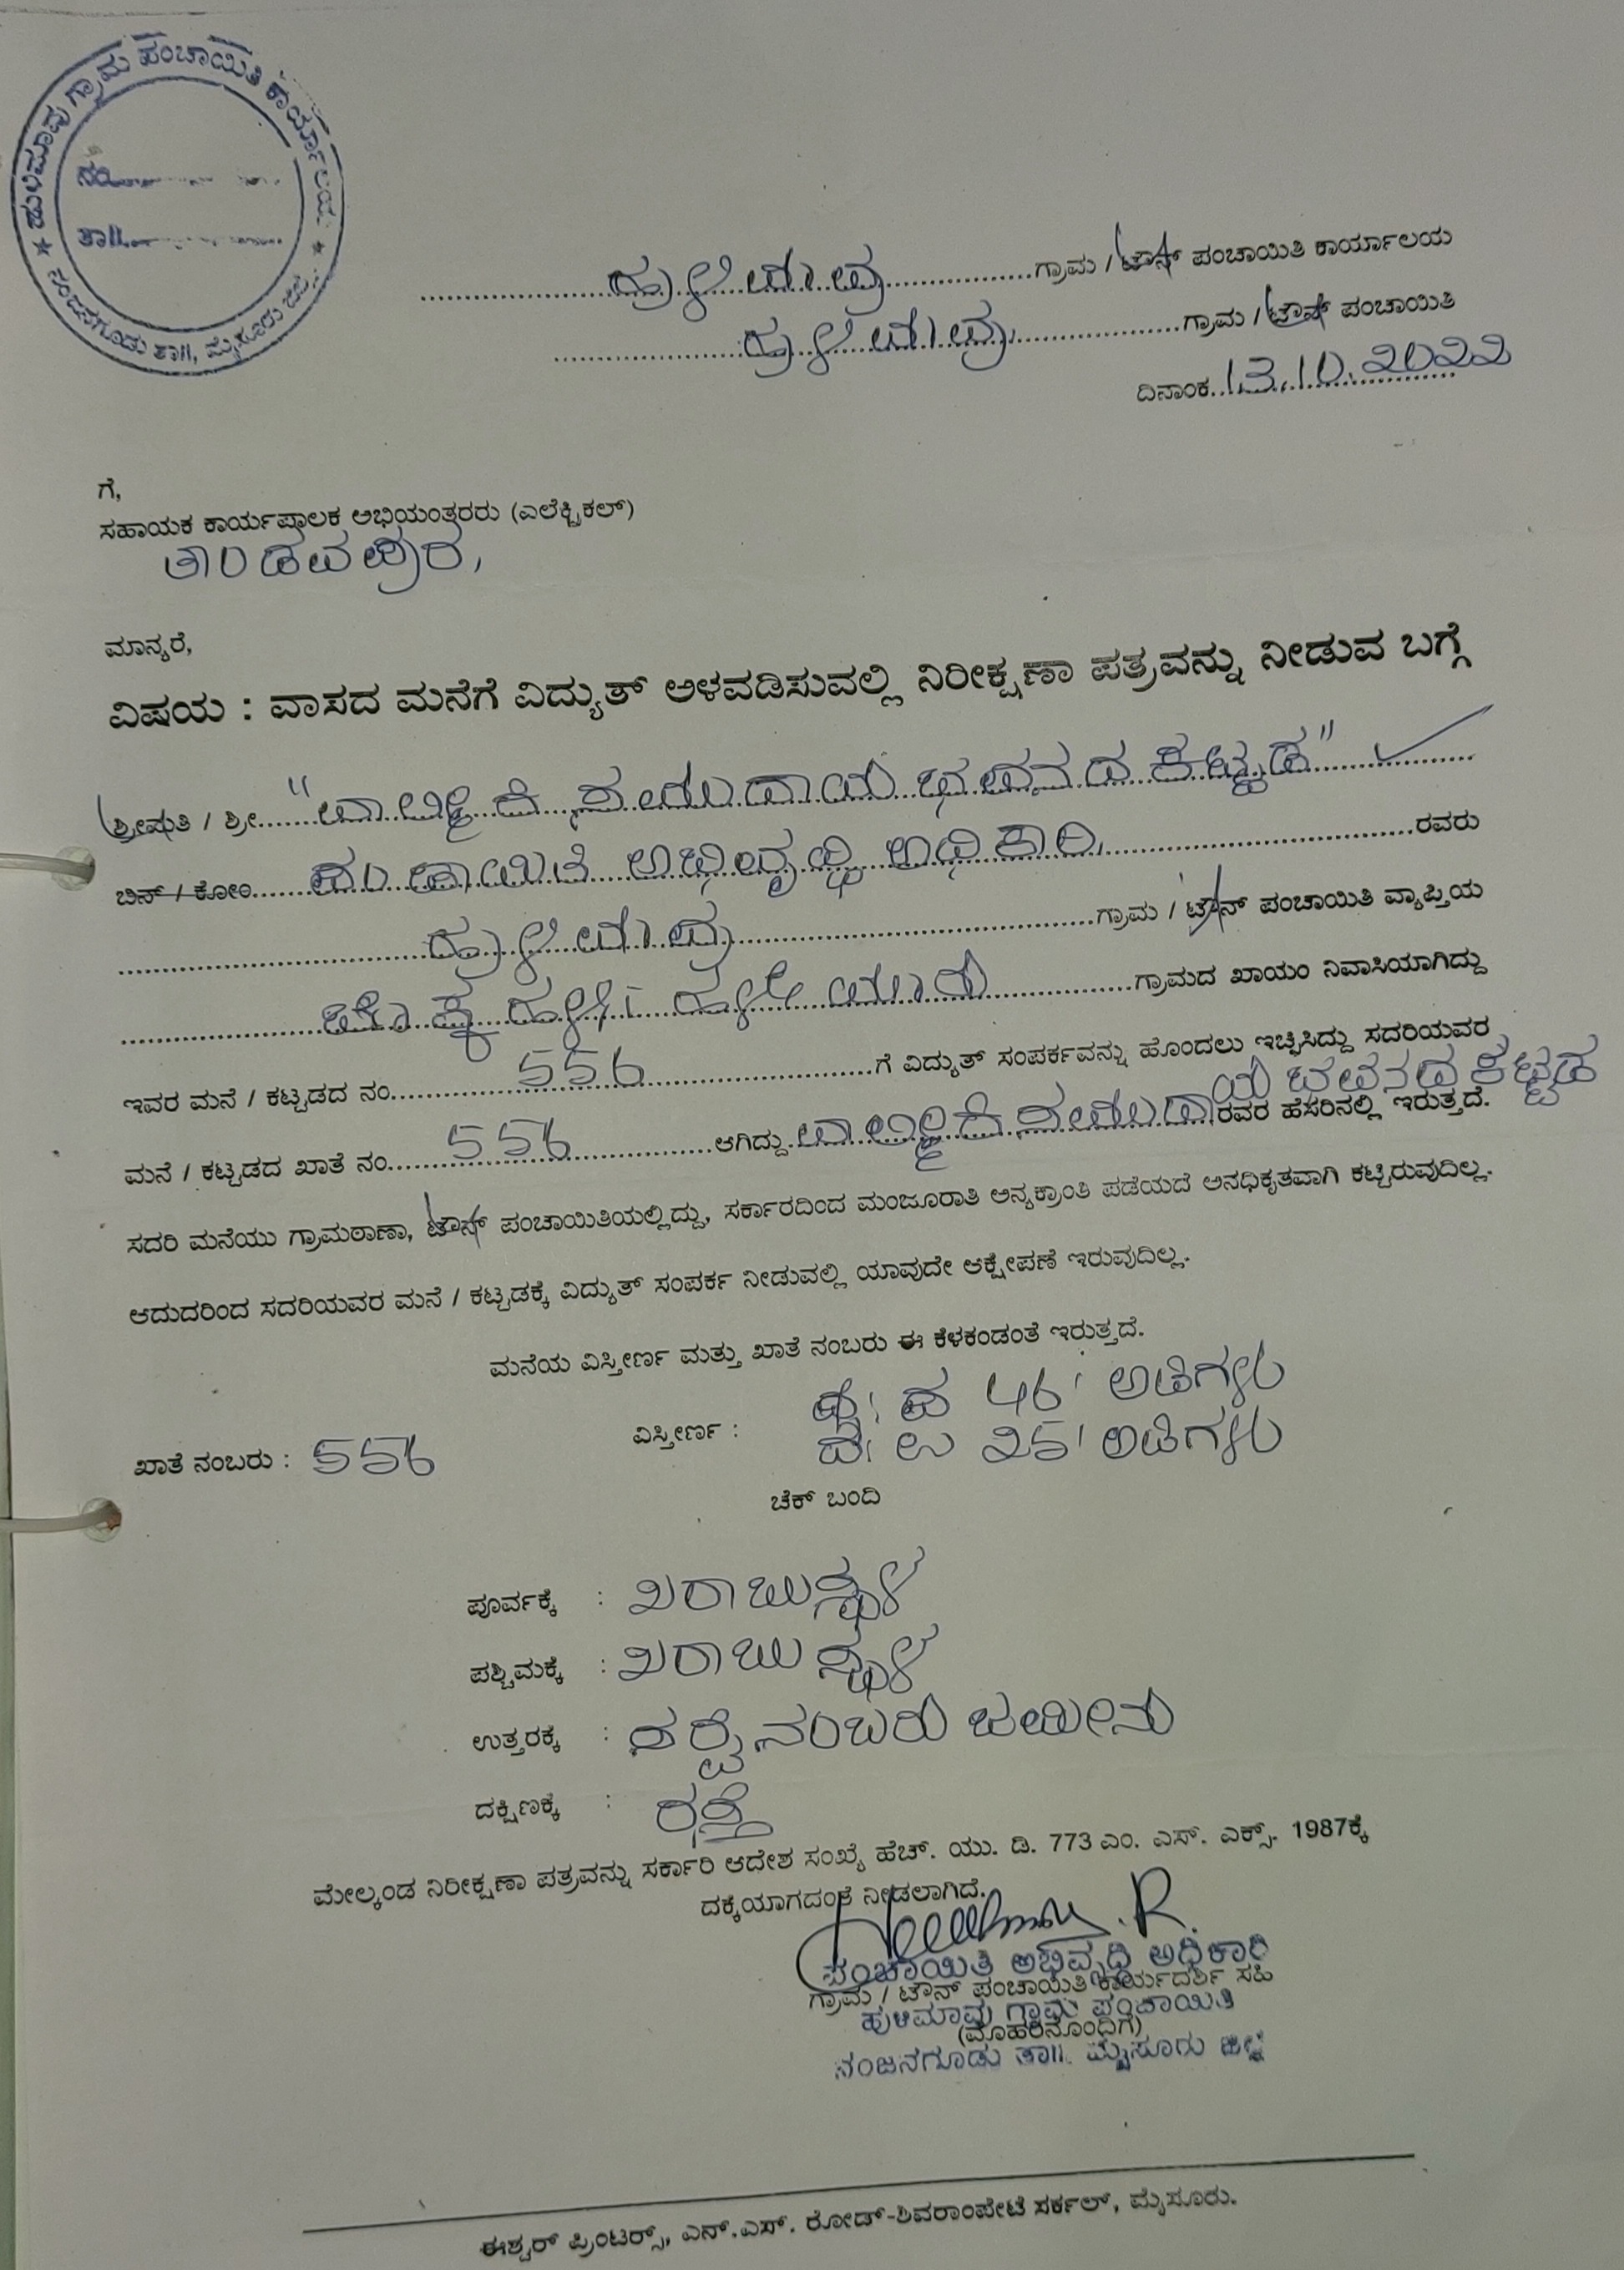 ಹುಳಿಮಾವು ಗ್ರಾಮ ಪಂಚಾಯಿತಿ ಕಾರ್ಯಾಲಯ
ನಂ
ತಾ||
ನಂಜನಗೂಡು ತಾ||, ಮೈಸೂರು ಜಿಲ್ಲೆ
ಹುಳಿಮಾವು ಗ್ರಾಮ / ಟೌನ್ ಪಂಚಾಯಿತಿ ಕಾರ್ಯಾಲಯ
ಹುಳಿಮಾವು ಗ್ರಾಮ / ಟೌನ್ ಪಂಚಾಯಿತಿ
ದಿನಾಂಕ 13.10.೨೦೨೨
ಗೆ,
ಸಹಾಯಕ ಕಾರ್ಯಪಾಲಕ ಅಭಿಯಂತರರು (ಎಲೆಕ್ಟ್ರಿಕಲ್)
ತಾಂಡವಪುರ,
ಮಾನ್ಯರೆ,
ವಿಷಯ : ವಾಸದ ಮನೆಗೆ ವಿದ್ಯುತ್ ಅಳವಡಿಸುವಲ್ಲಿ ನಿರೀಕ್ಷಣಾ ಪತ್ರವನ್ನು ನೀಡುವ ಬಗ್ಗೆ
ಶ್ರೀಮತಿ / ಶ್ರೀ "ವಾಲ್ಮೀಕಿ ಸಮುದಾಯ ಭವನದ ಕಟ್ಟಡ"
ಬಿನ್ / ಕೋಂ ಪಂಚಾಯಿತಿ ಅಭಿವೃದ್ಧಿ ಅಧಿಕಾರಿ, ರವರು
ಹುಳಿಮಾವು ಗ್ರಾಮ / ಟೌನ್ ಪಂಚಾಯಿತಿ ವ್ಯಾಪ್ತಿಯ
ಹಳೇಯೂರು ಗ್ರಾಮದ ಖಾಯಂ ನಿವಾಸಿಯಾಗಿದ್ದು
ಇವರ ಮನೆ / ಕಟ್ಟಡದ ನಂ. 556 ಗೆ ವಿದ್ಯುತ್ ಸಂಪರ್ಕವನ್ನು ಹೊಂದಲು ಇಚ್ಛಿಸಿದ್ದು ಸದರಿಯವರ
ಮನೆ / ಕಟ್ಟಡದ ಖಾತೆ ನಂ. 556 ಆಗಿದ್ದು ವಾಲ್ಮೀಕಿ ಸಮುದಾಯ ಭವನದ ಕಟ್ಟಡ ರವರ ಹೆಸರಿನಲ್ಲಿ ಇರುತ್ತದೆ.
ಸದರಿ ಮನೆಯು ಗ್ರಾಮಠಾಣಾ, ಟೌನ್ ಪಂಚಾಯಿತಿಯಲ್ಲಿದ್ದು, ಸರ್ಕಾರದಿಂದ ಮಂಜೂರಾತಿ ಅನ್ಯಕ್ರಾಂತಿ ಪಡೆಯದೆ ಅನಧಿಕೃತವಾಗಿ ಕಟ್ಟಿರುವುದಿಲ್ಲ.
ಆದುದರಿಂದ ಸದರಿಯವರ ಮನೆ / ಕಟ್ಟಡಕ್ಕೆ ವಿದ್ಯುತ್ ಸಂಪರ್ಕ ನೀಡುವಲ್ಲಿ ಯಾವುದೇ ಆಕ್ಷೇಪಣೆ ಇರುವುದಿಲ್ಲ.
ಮನೆಯ ವಿಸ್ತೀರ್ಣ ಮತ್ತು ಖಾತೆ ನಂಬರು ಈ ಕೆಳಕಂಡಂತೆ ಇರುತ್ತದೆ.
ಖಾತೆ ನಂಬರು : 556 ವಿಸ್ತೀರ್ಣ : ಪೂ। ಪ 46' ಅಡಿಗಳು
ದ। ಉ ೨5' ಅಡಿಗಳು
ಚೆಕ್ ಬಂದಿ
ಪೂರ್ವಕ್ಕೆ : ಖರಾಬು ಸ್ಥಳ
ಪಶ್ಚಿಮಕ್ಕೆ : ಖರಾಬು ಸ್ಥಳ
ಉತ್ತರಕ್ಕೆ : ಸರ್ವೆ ನಂಬರು ಜಮೀನು
ದಕ್ಷಿಣಕ್ಕೆ : ರಸ್ತೆ
ಮೇಲ್ಕಂಡ ನಿರೀಕ್ಷಣಾ ಪತ್ರವನ್ನು ಸರ್ಕಾರಿ ಆದೇಶ ಸಂಖ್ಯೆ ಹೆಚ್. ಯು. ಡಿ. 773 ಎಂ. ಎಸ್. ಎಕ್ಸ್. 1987ಕ್ಕೆ
ದಕ್ಕೆಯಾಗದಂತೆ ನೀಡಲಾಗಿದೆ.
ಪಂಚಾಯಿತಿ ಅಭಿವೃದ್ಧಿ ಅಧಿಕಾರಿ
ಗ್ರಾಮ / ಟೌನ್ ಪಂಚಾಯಿತಿ ಕಾರ್ಯದರ್ಶಿ ಸಹಿ
ಹುಳಿಮಾವು ಗ್ರಾಮ ಪಂಚಾಯಿತಿ
(ಮೊಹರಿನೊಂದಿಗೆ)
ನಂಜನಗೂಡು ತಾ||. ಮೈಸೂರು ಜಿಲ್ಲೆ
ಈಶ್ವರ್ ಪ್ರಿಂಟರ್ಸ್, ಎನ್.ಎಸ್. ರೋಡ್-ಶಿವರಾಂಪೇಟೆ ಸರ್ಕಲ್, ಮೈಸೂರು.